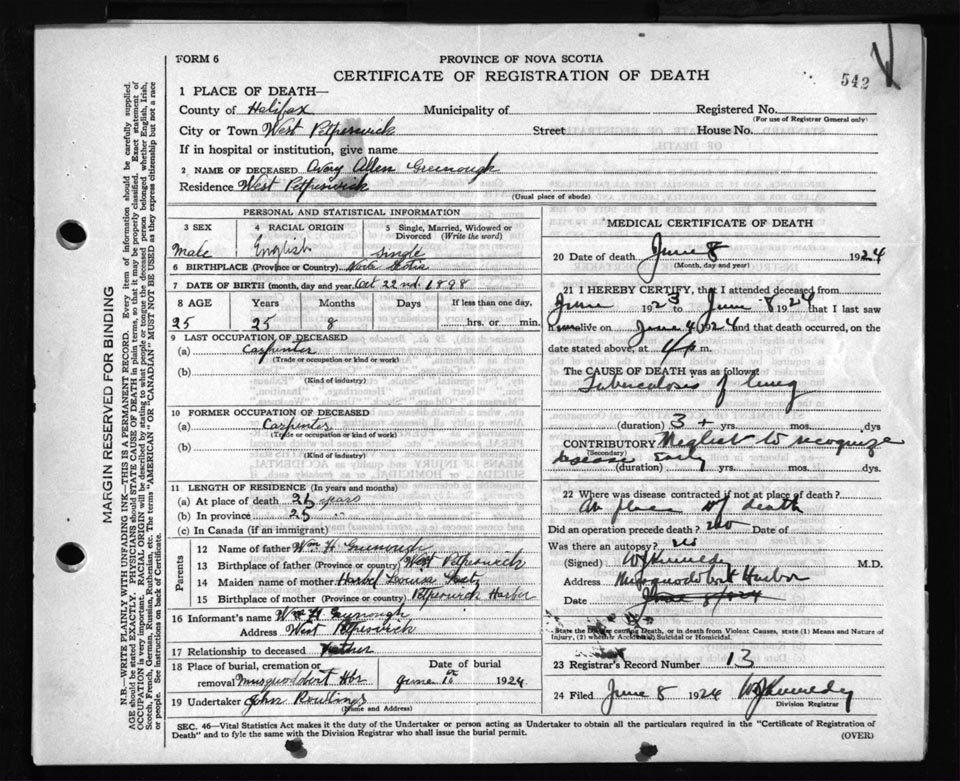 FORM 6
PROVINCE OF NOVA SCOTIA
CERTIFICATE OF REGISTRATION OF DEATH
542
1 PLACE OF DEATH—
County of Halifax Municipality of Registered No.
(For use of Registrar General only)
City or Town West Petpeswick Street House No.
If in hospital or institution, give name
2 NAME OF DECEASED Avory Allen Greenough
Residence West Petpeswick
(Usual place of abode)
PERSONAL AND STATISTICAL INFORMATION
3 SEX 4 RACIAL ORIGIN 5 Single, Married, Widowed or Divorced (Write the word)
Male English Single
6 BIRTHPLACE (Province or Country) Nova Scotia
7 DATE OF BIRTH (month, day and year) Oct 22nd 1898
8 AGE Years Months Days If less than one day,
25 25 8 hrs. or min.
9 LAST OCCUPATION OF DECEASED
(a) Carpenter
(Trade or occupation or kind or work)
(b)
(Kind of industry)
10 FORMER OCCUPATION OF DECEASED
(a) Carpenter
(Trade or occupation or kind of work)
(b)
(Kind of Industry)
11 LENGTH OF RESIDENCE (In years and months)
(a) At place of death 25 years
(b) In province 25 "
(c) In Canada (if an immigrant)
Parents
12 Name of father Wm H Greenough
13 Birthplace of father (Province or country) West Petpeswick
14 Maiden name of mother Louisa
15 Birthplace of mother (Province or country) Petpeswick Harbor
16 Informant's name Wm H Greenough
Address West Petpeswick
17 Relationship to deceased Father
18 Place of burial, cremation or Date of burial
removal Musquodobit Hbr June 10 1924
19 Undertaker John Rowlings
(Name and Address)
MEDICAL CERTIFICATE OF DEATH
20 Date of death June 8 1924
(Month, day and year)
21 I HEREBY CERTIFY, that I attended deceased from
June 1923 to June 8 1924 that I last saw
h im alive on June 4 1924 and that death occurred, on the
date stated above, at 4 p m.
The CAUSE OF DEATH was as follows:
Tuberculosis of lung
(duration) 3 + yrs. mos. dys
CONTRIBUTORY Neglect to recognize
(Secondary) disease early
(duration) yrs. mos. dys.
22 Where was disease contracted if not at place of death?
At place of death
Did an operation precede death? no Date of
Was there an autopsy? no
(Signed) WJ Kennedy M.D.
Address Musquodoboit Harbor
Date June 8/1924
State the Disease causing Death, or in death from Violent Causes, state (1) Means and Nature of
Injury, (2) whether Accidental, Suicidal or Homicidal.
23 Registrar's Record Number 13
24 Filed June 8 1924 WJ Kennedy
Division Registrar
SEC. 46—Vital Statistics Act makes it the duty of the Undertaker or person acting as Undertaker to obtain all the particulars required in the "Certificate of Registration of
Death" and to fyle the same with the Division Registrar who shall issue the burial permit.
(OVER)
MARGIN RESERVED FOR BINDING
N.B.—WRITE PLAINLY WITH UNFADING INK—THIS IS A PERMANENT RECORD. Every item of information should be carefully supplied.
AGE should be stated EXACTLY. PHYSICIANS should STATE CAUSE OF DEATH in plain terms, so that it may be properly classified. Exact statement of
OCCUPATION is very important. RACIAL ORIGIN will be described by stating to what people or tongue the deceased person belonged whether English, Irish,
Scotch, French, German, Russian, Ruthenian, etc. The terms "AMERICAN" or "CANADIAN" MUST NOT BE USED as they express citizenship but not a race
or people. See instructions on back of Certificate.